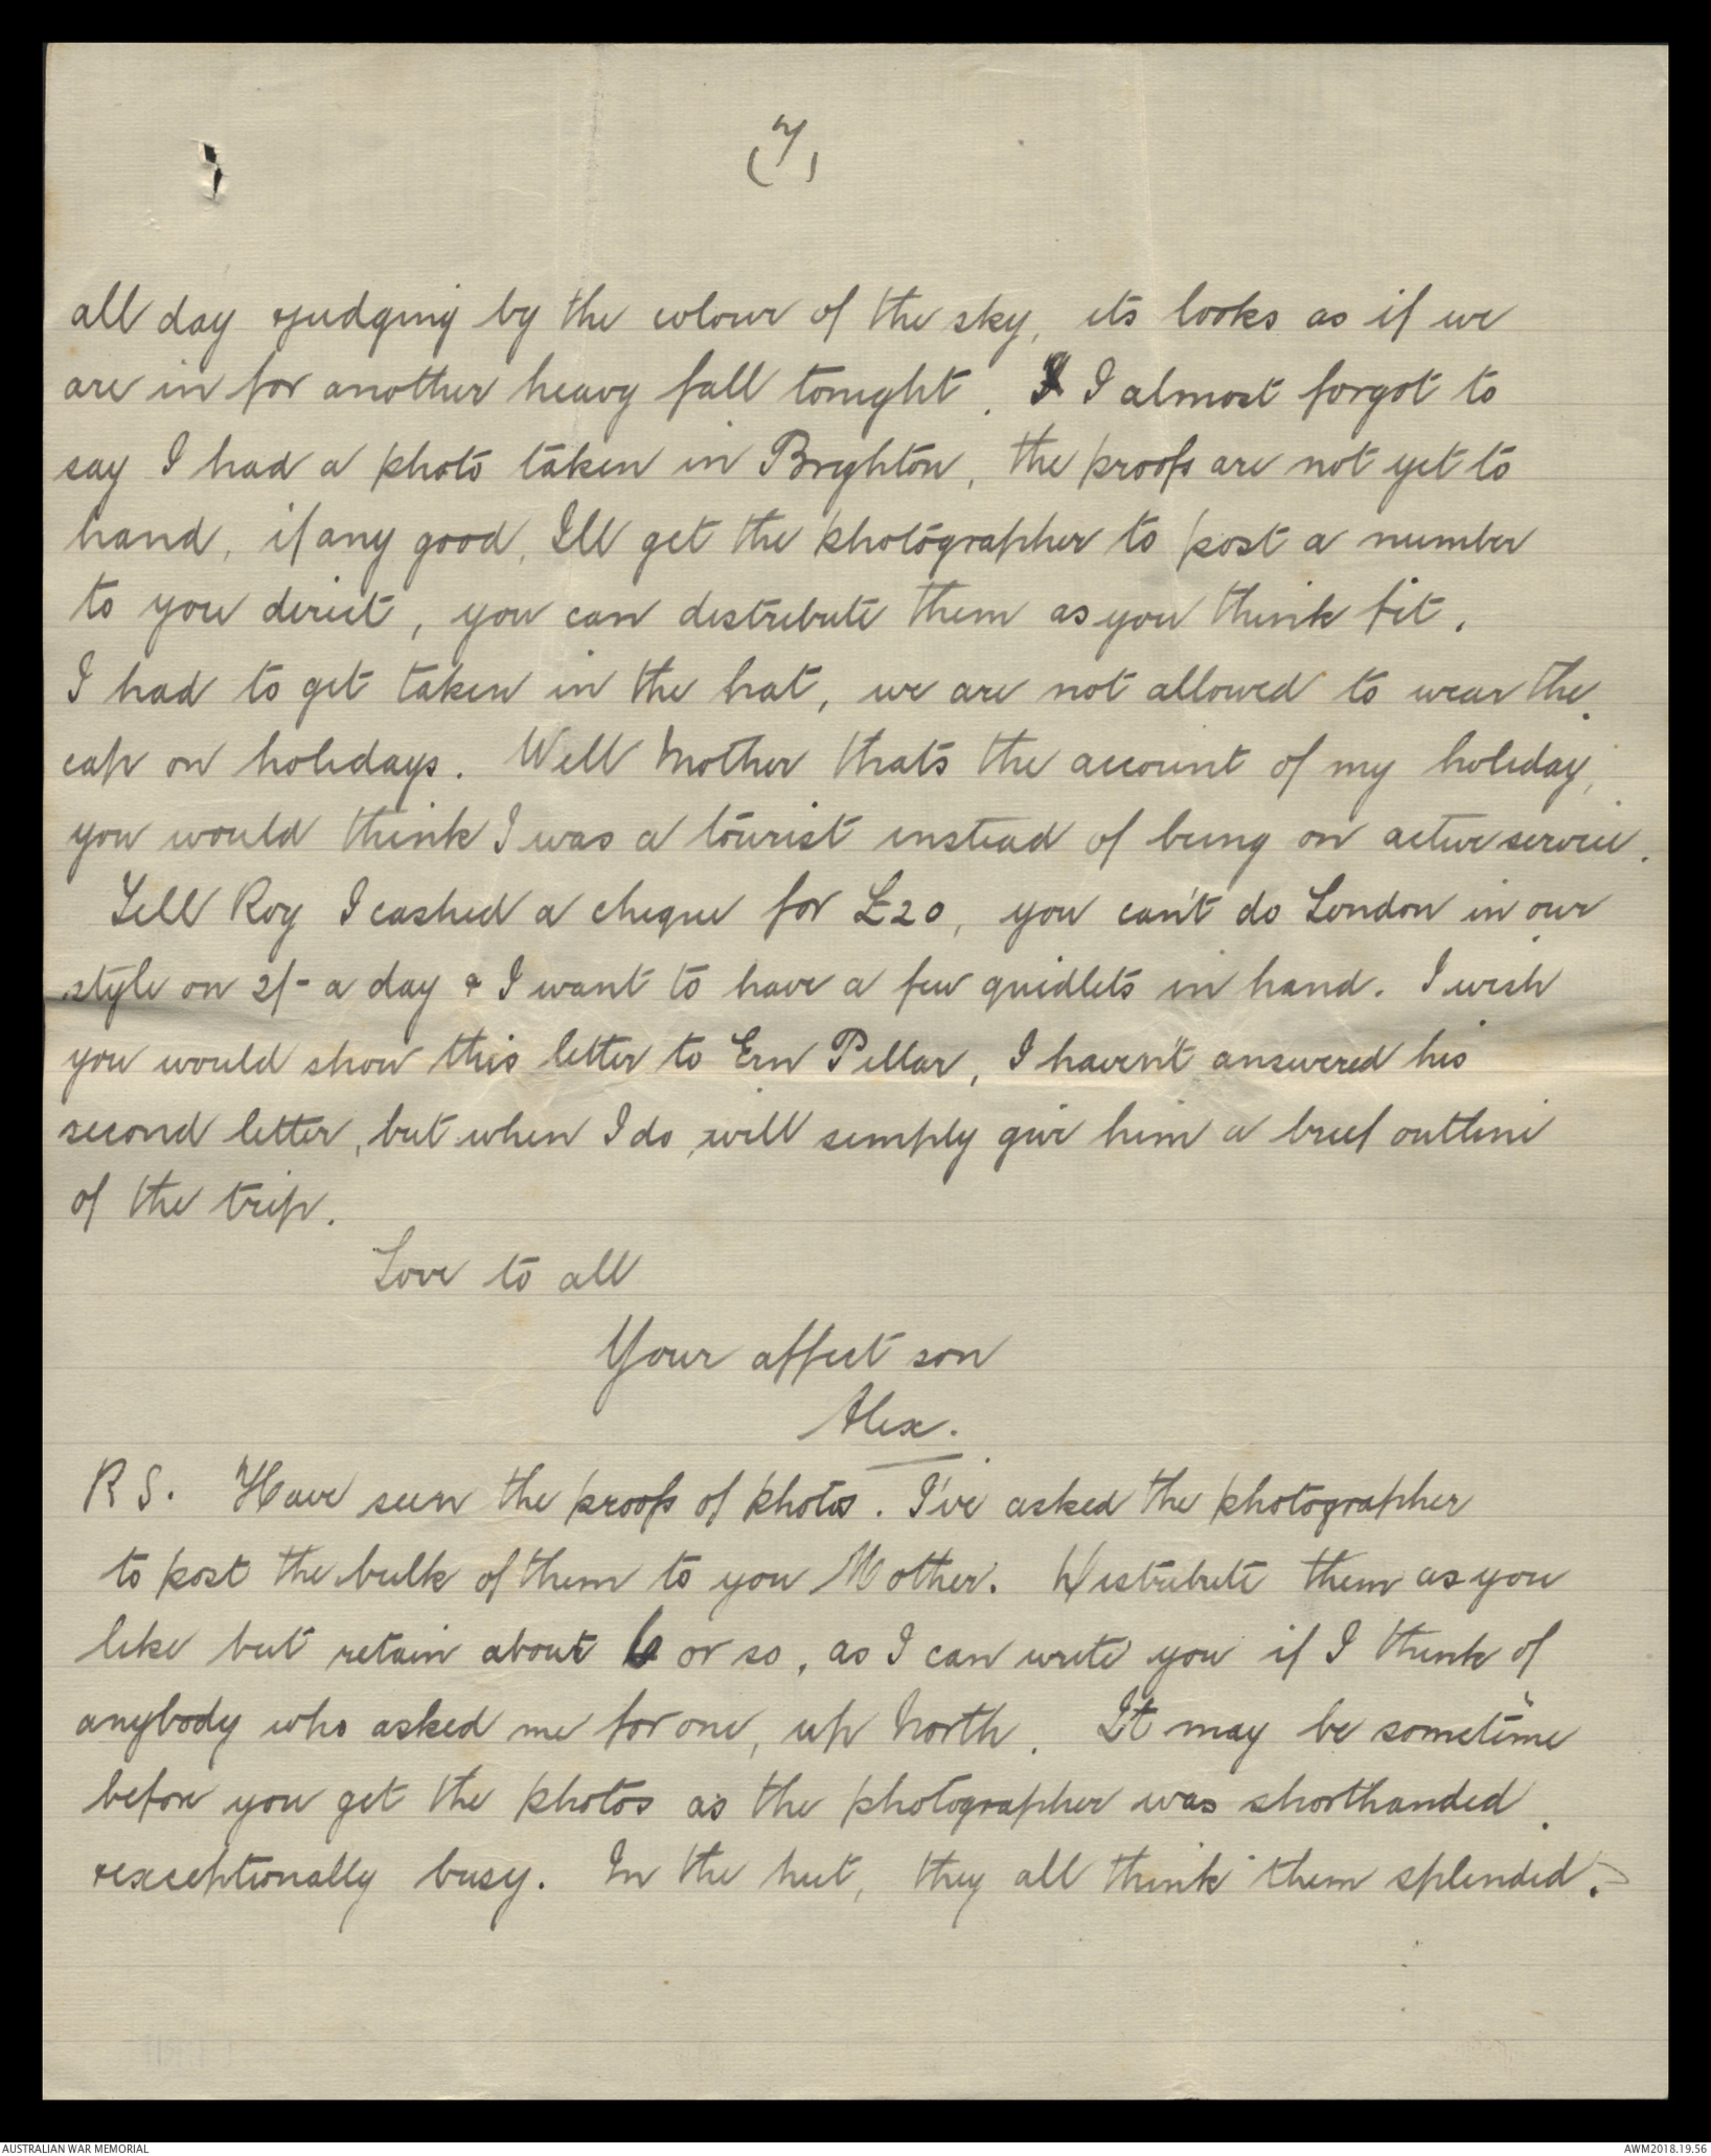 (7)
all day & judging by the colour of the sky, its looks as if we
are in for another heavy fall tonight. I I almost forgot to
say I had a photo taken in Brighton, the proofs are not yet to
hand, if any good, I'll get the photographer to post a number
to you direct, you can distribute them as you think fit.
I had to get taken in the hat, we are not allowed to wear the
cap on holidays. Well Mother thats the account of my holiday,
you would think I was a tourist instead of being on active service.
Tell Roy I cashed a cheque for £20, you can't do London in our
style on 2/- a day & I want to have a few quidlets in hand. I wish
you would show this letter to Ern Pellar, I haven't answered his
second letter, but when I do, will simply give him a brief outline
of the trip.
Love to all
Your affect son
Alex.
P.S. Have seen the proofs of photos. I've asked the photographer
to post the bulk of them to you Mother. Distribute them as you
like but retain about 6 or so, as I can write you if I think of
anybody who asked me for one, up North. It may be sometime
before you get the photos as the photographer was shorthanded
& exceptionally busy. In the hut, they all think them splendid.
AUSTRALIAN WAR MEMORIAL
AWM2018.19.56